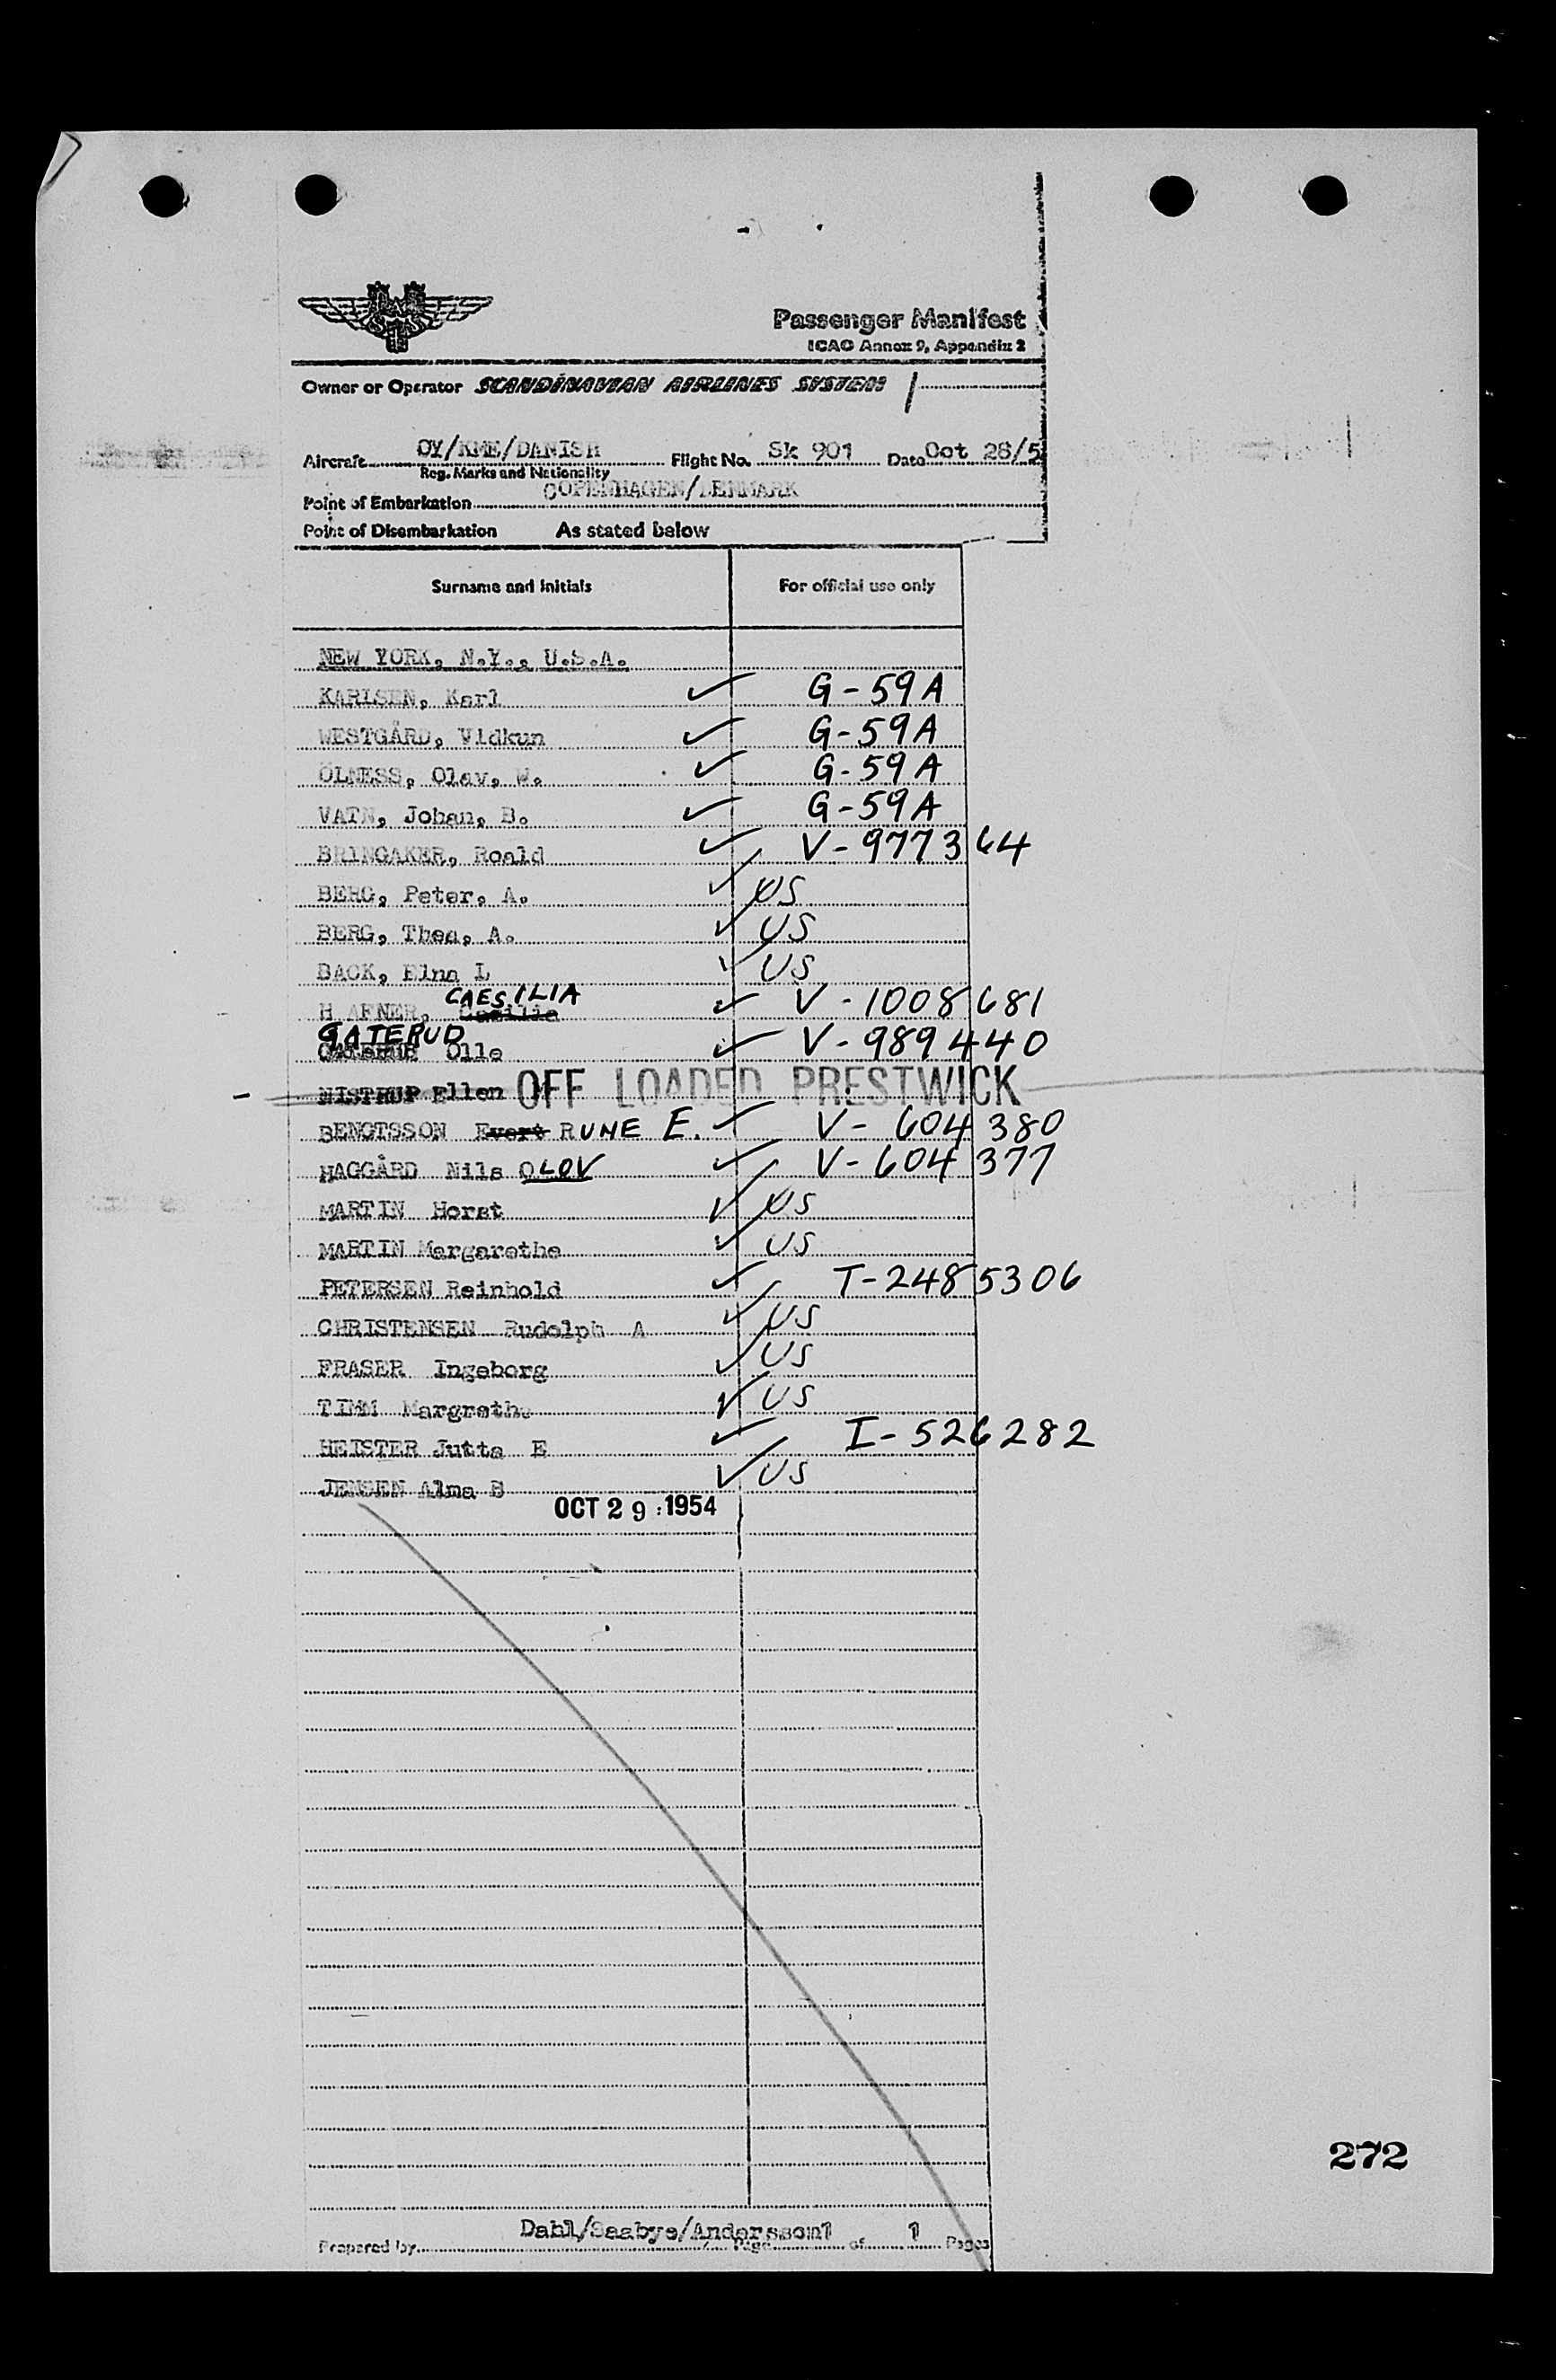 Passenger Manifest
ICAO Annex 9, Appendix 2
Owner or Operator SCANDINAVIAN AIRLINES SYSTEM
Aircraft OY/KME/DANISH Flight No. Sk 901 Date Oct 28/5
Reg. Marks and Nationality
Point of Embarkation COPENHAGEN/DENMARK
Point of Disembarkation As stated below
Surname and initials For official use only
NEW YORK, N.Y., U.S.A.
KARLSEN, Karl ✓ G-59A
WESTGÅRD, Vidkun ✓ G-59A
ÖLNESS, Olav, W. ✓ G-59A
VATN, Johan, B. ✓ G-59A
BRINGAKER, Roald ✓ V-977364
BERG, Peter, A. ✓ US
BERG, Thea, A. ✓ US
BACK, Elna L ✓ US
CAESILIA
H AFNER, Cecilie ✓ V-1008681
GATERUD
Olle ✓ V-989440
NISTRUP Ellen OFF LOADED PRESTWICK
BENGTSSON Evert RUNE E. ✓ V-604380
HAGGÅRD Nils OLOV ✓ V-604377
MARTIN Horst ✓ US
MARTIN Margarethe ✓ US
PETERSEN Reinhold ✓ T-2485306
CHRISTENSEN Rudolph A ✓ US
FRASER Ingeborg ✓ US
TIMM Margrethe ✓ US
HEISTER Jutta E ✓ I-526282
JENSEN Alma B ✓ US
OCT 29 1954
272
Prepared by Dahl/Saabye/Andersson Page 1 of 1 Pages